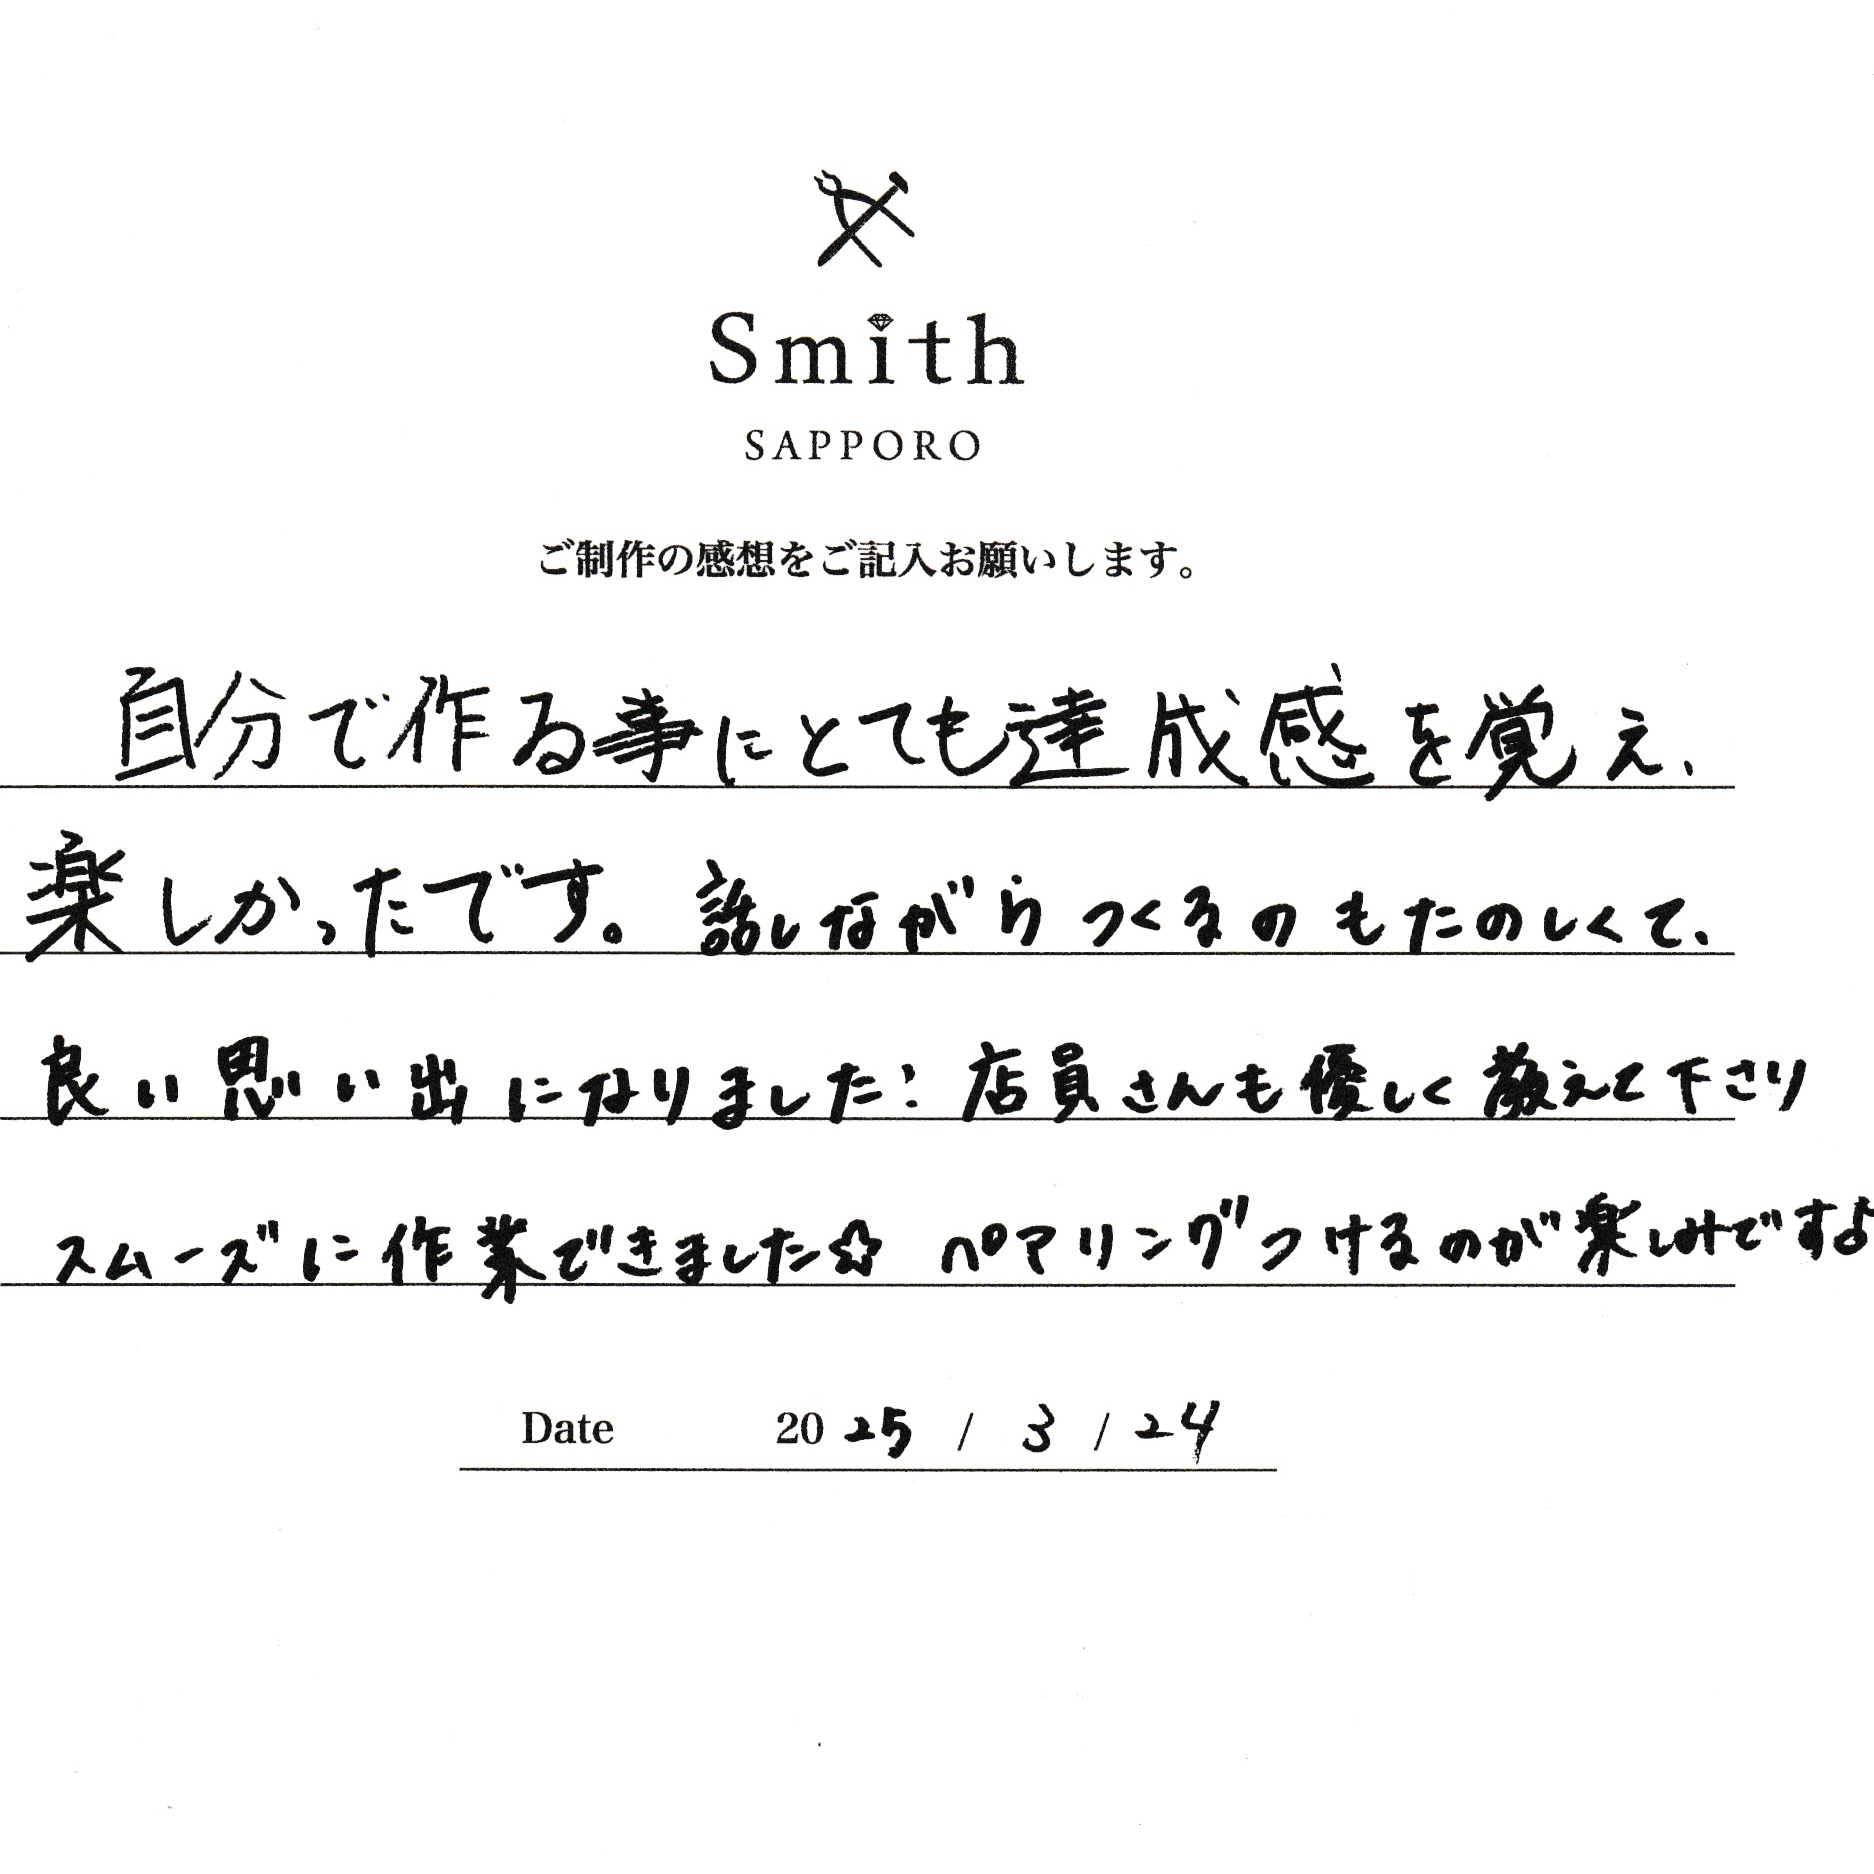 Smith
SAPPORO
ご制作の感想をご記入お願いします。
自分で作る事にとても達成感を覚え、
楽しかったです。話しながらつくるのもたのしくて、
良い思い出になりました! 店員さんも優しく教えて下さり
スムーズに作業できました☆ ペアリングつけるのが楽しみです♪
Date 2025 / 3 / 24